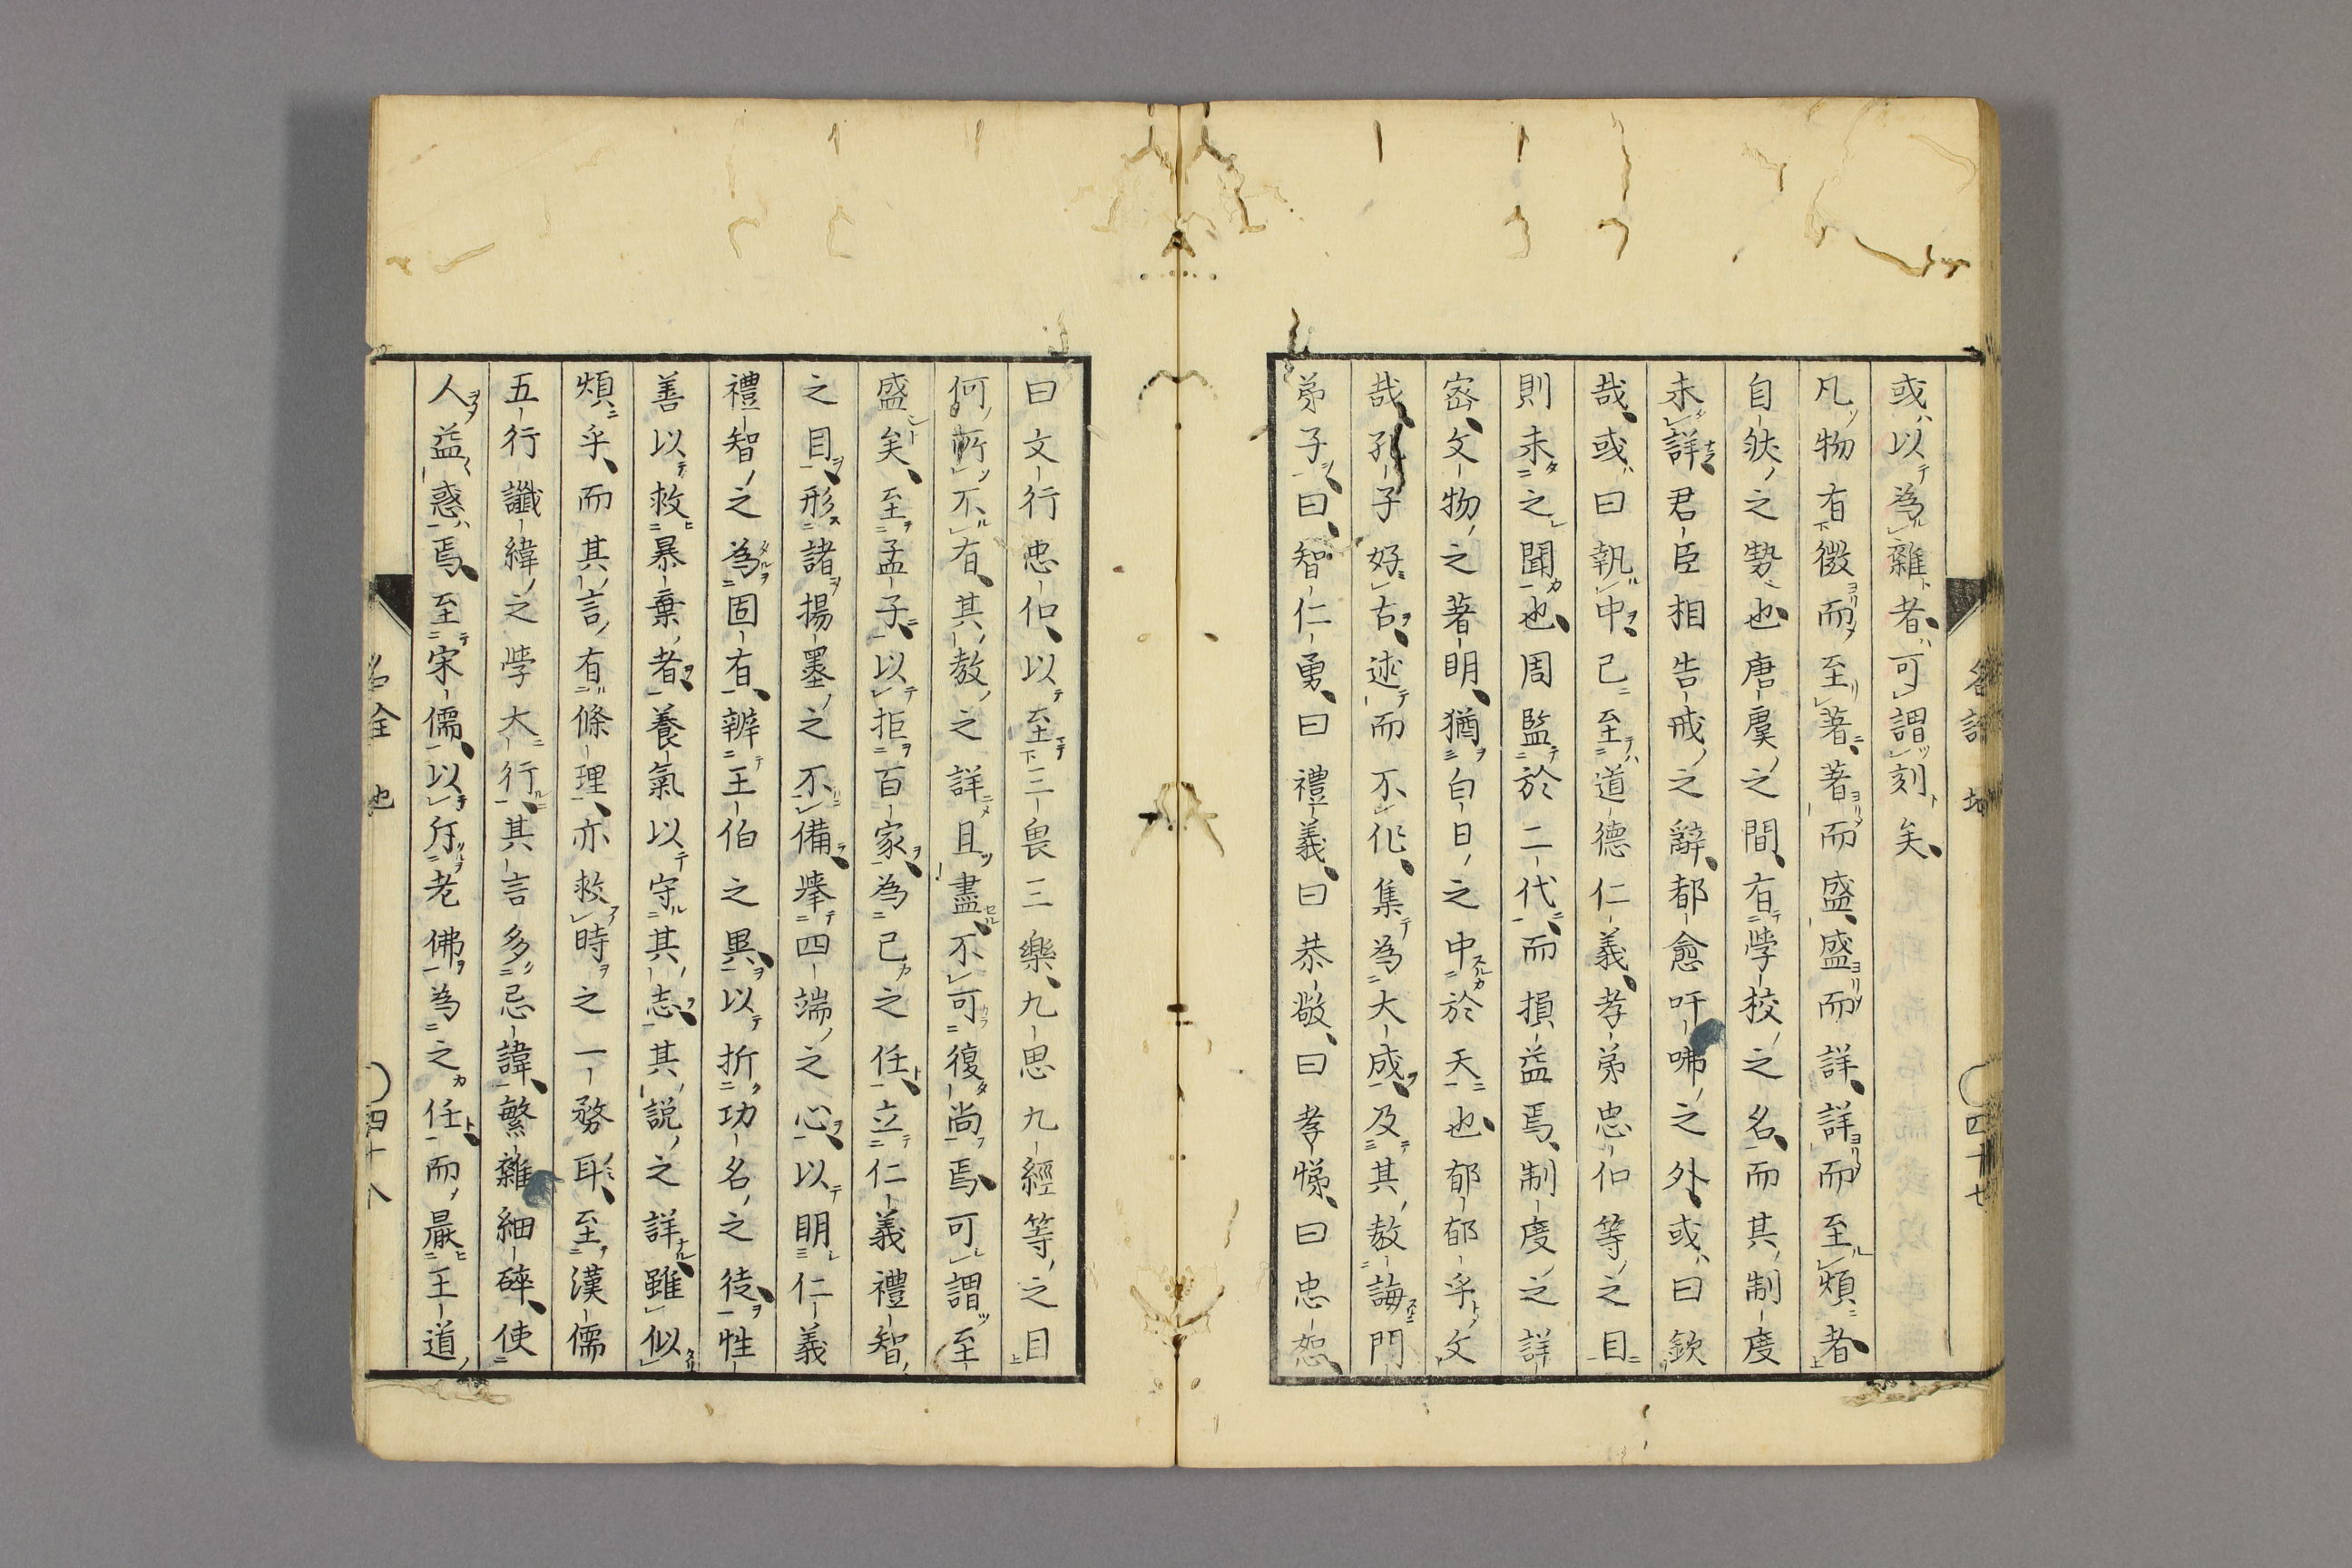 或以為雜者可謂刻矣
凡物有微而至著著而盛盛而詳詳而至煩者
自然之勢也唐虞之間有學校之名而其制度
未詳君臣相告戒之辭都俞吁咈之外或曰欽
哉或曰執中已至道德仁義孝弟忠信等之目
則未之聞也周監於二代而損益焉制度之詳
密文物之著明猶白日之中於天也郁郁乎文
哉孔子好古述而不作集為大成及其教誨門
弟子曰智仁勇曰禮義曰恭敬曰孝悌曰忠恕
四十七
曰文行忠信以至三畏三樂九思九經等之目
何所不有其教之詳且盡不可復尚焉可謂至
盛矣至孟子以拒百家為己之任立仁義禮智
之目形諸揚墨之不備舉四端之心以明仁義
禮智之為固有辨王伯之異以折功名之徒性
善以救暴棄者養氣以守其志其說之詳雖似
煩乎而其言有條理亦救時之一務耳至漢儒
五行讖緯之學大行其言多忌諱繁雜細碎使
人益惑焉至宋儒以斥老佛為之任而最王道
四十八